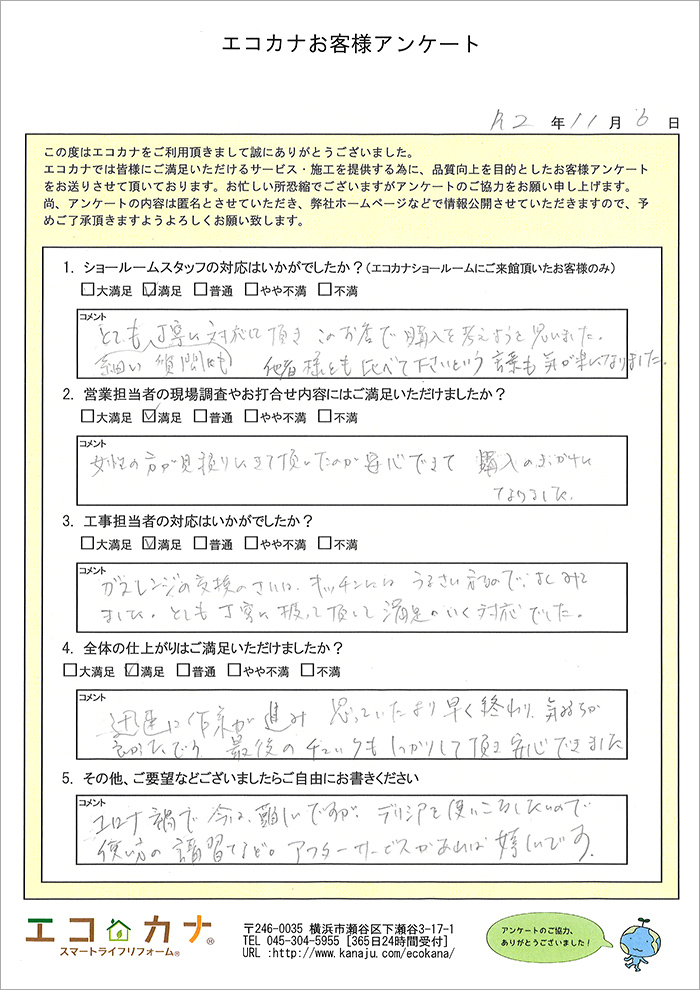 エコカナお客様アンケート
R2 年 11 月 6 日
この度はエコカナをご利用頂きまして誠にありがとうございました。
エコカナでは皆様にご満足いただけるサービス・施工を提供する為に、品質向上を目的としたお客様アンケート
をお送りさせて頂いております。お忙しい所恐縮でございますがアンケートのご協力をお願い申し上げます。
尚、アンケートの内容は匿名とさせていただき、弊社ホームページなどで情報公開させていただきますので、予
めご了承頂きますようよろしくお願い致します。
1. ショールームスタッフの対応はいかがでしたか？(エコカナショールームにご来館頂いたお客様のみ)
□大満足 ☑満足 □普通 □やや不満 □不満
コメント
とても丁寧に対応して頂き このお店で購入を考えようと思いました。
細い質問にも 他者様とも比べて下さいという言葉も気が楽になりました。
2. 営業担当者の現場調査やお打合せ内容にはご満足いただけましたか？
□大満足 ☑満足 □普通 □やや不満 □不満
コメント
女性の方が見積りにきて頂いたのが安心できて 購入の
なりました。
3. 工事担当者の対応はいかがでしたか？
□大満足 ☑満足 □普通 □やや不満 □不満
コメント
ガスレンジの交換のさいは、キッチンには うるさい方なので、
ました。とても丁寧に扱って頂いて満足のいく対応でした。
4. 全体の仕上がりはご満足いただけましたか？
□大満足 ☑満足 □普通 □やや不満 □不満
コメント
迅速に作業が進み 思っていたより早く終わり、気持ちが
良かったです。最後のチェックもしっかりして頂き安心できました
5. その他、ご要望などございましたらご自由にお書きください
コメント
コロナ禍で今は、難しいですが、デリシアを使いこなしたいので
使い方の講習など。アフターサービスがあれば嬉しいです。
エコカナ®
スマートライフリフォーム®
〒246-0035 横浜市瀬谷区下瀬谷3-17-1
TEL 045-304-5955 [365日24時間受付]
URL :http://www.kanaju.com/ecokana/
アンケートのご協力、
ありがとうございました！